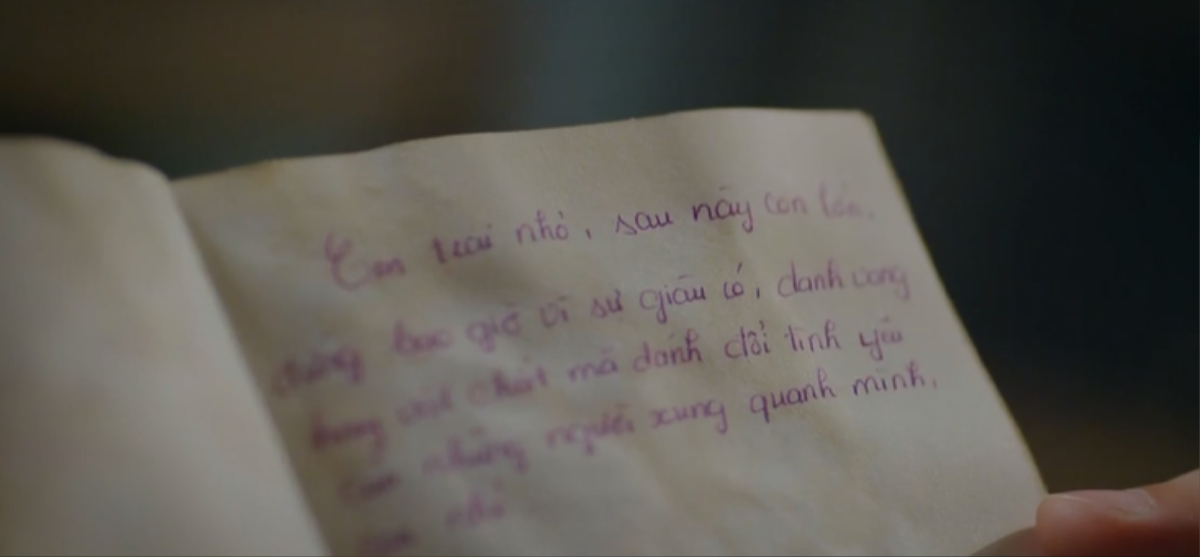 Con trai nhỏ, sau này con lớn,
đừng bao giờ vì sự giàu có, danh vọng
mà đánh đổi tình yêu
những người xung quanh mình.
nhé